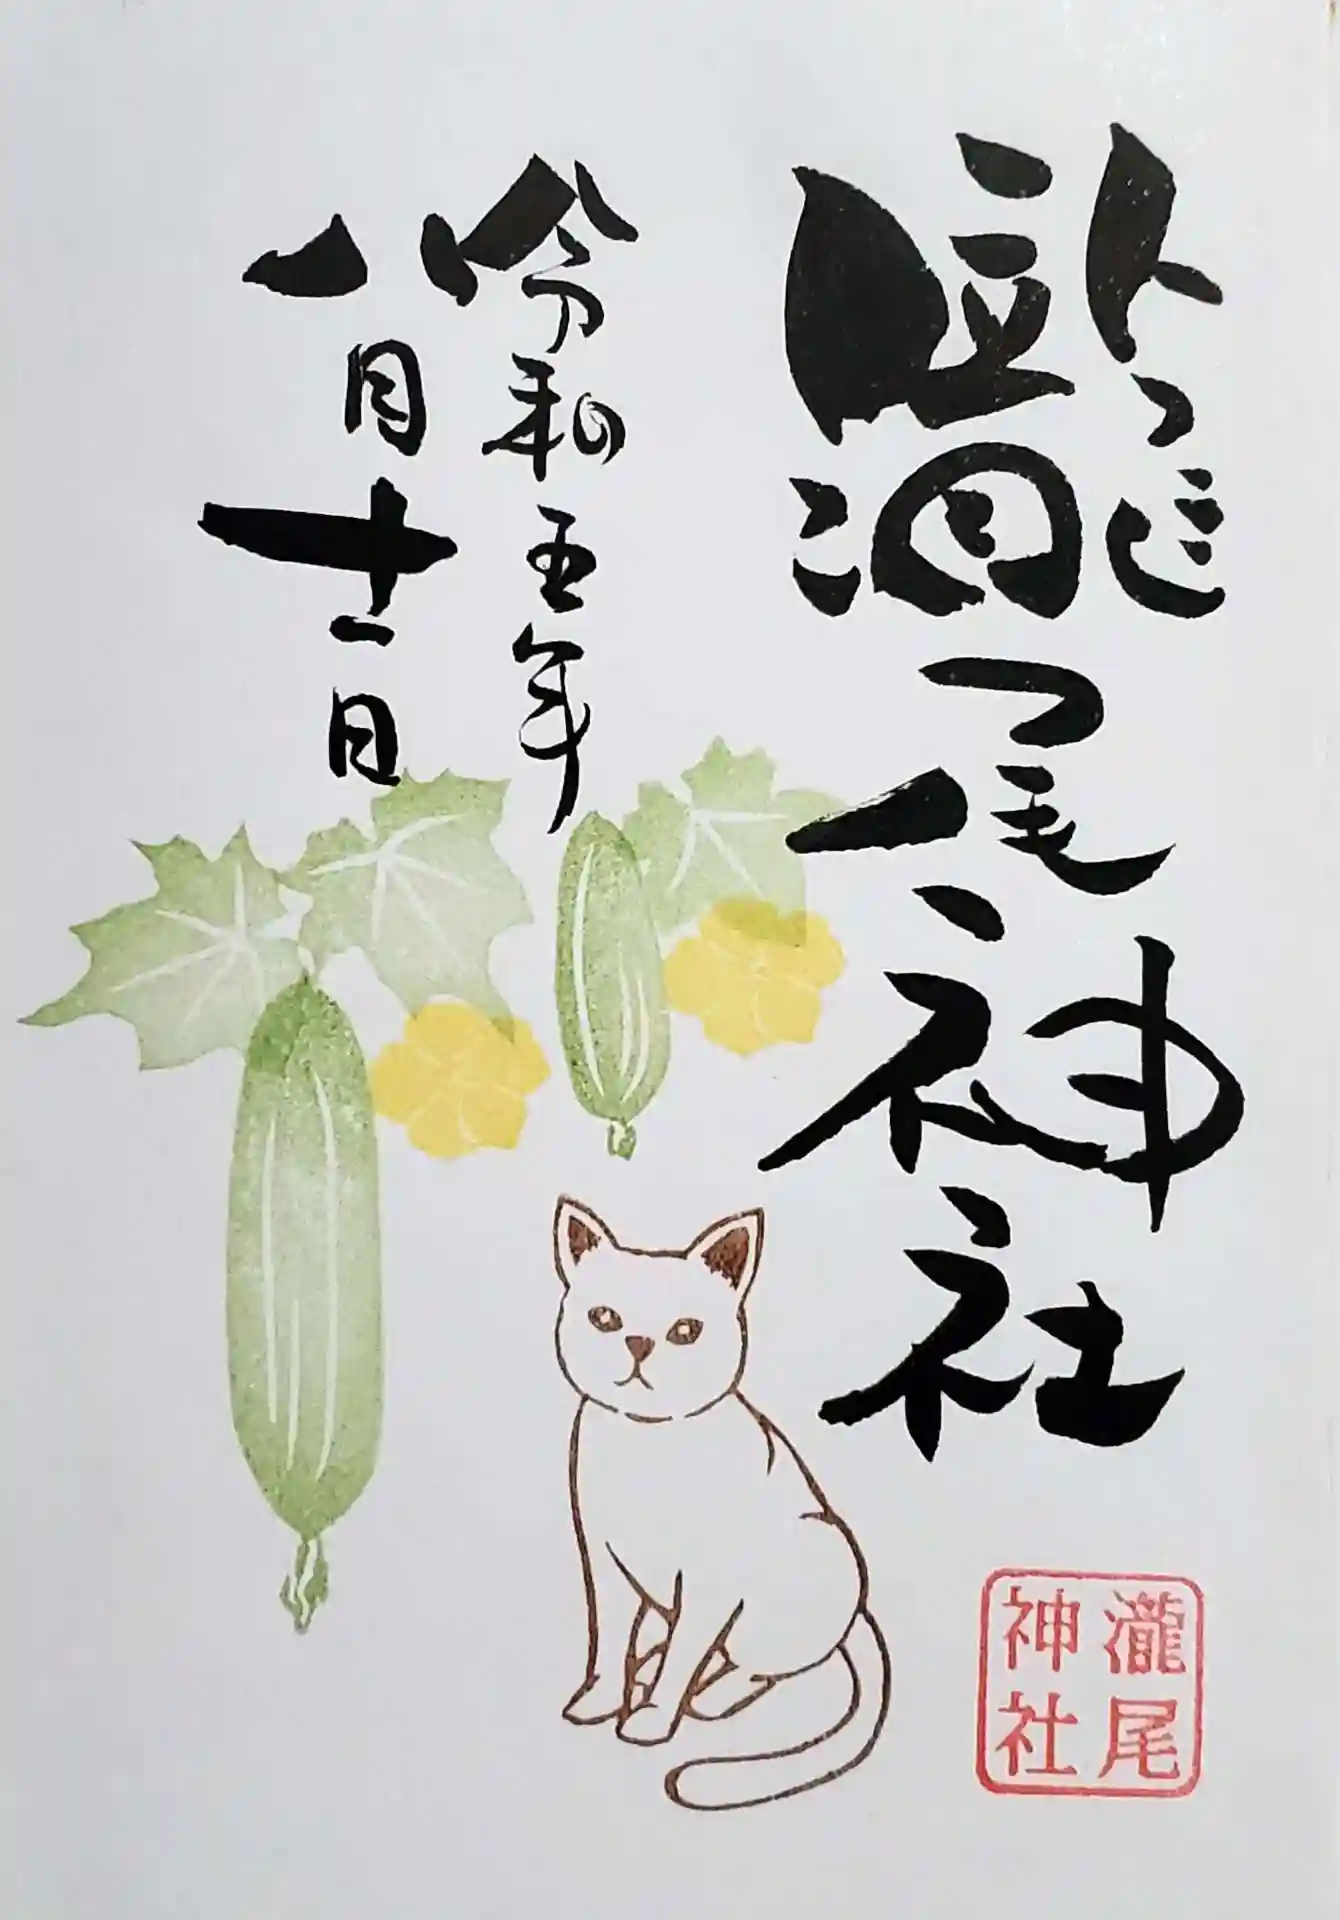 瀧尾神社
令和五年
八月十一日
瀧尾
神社